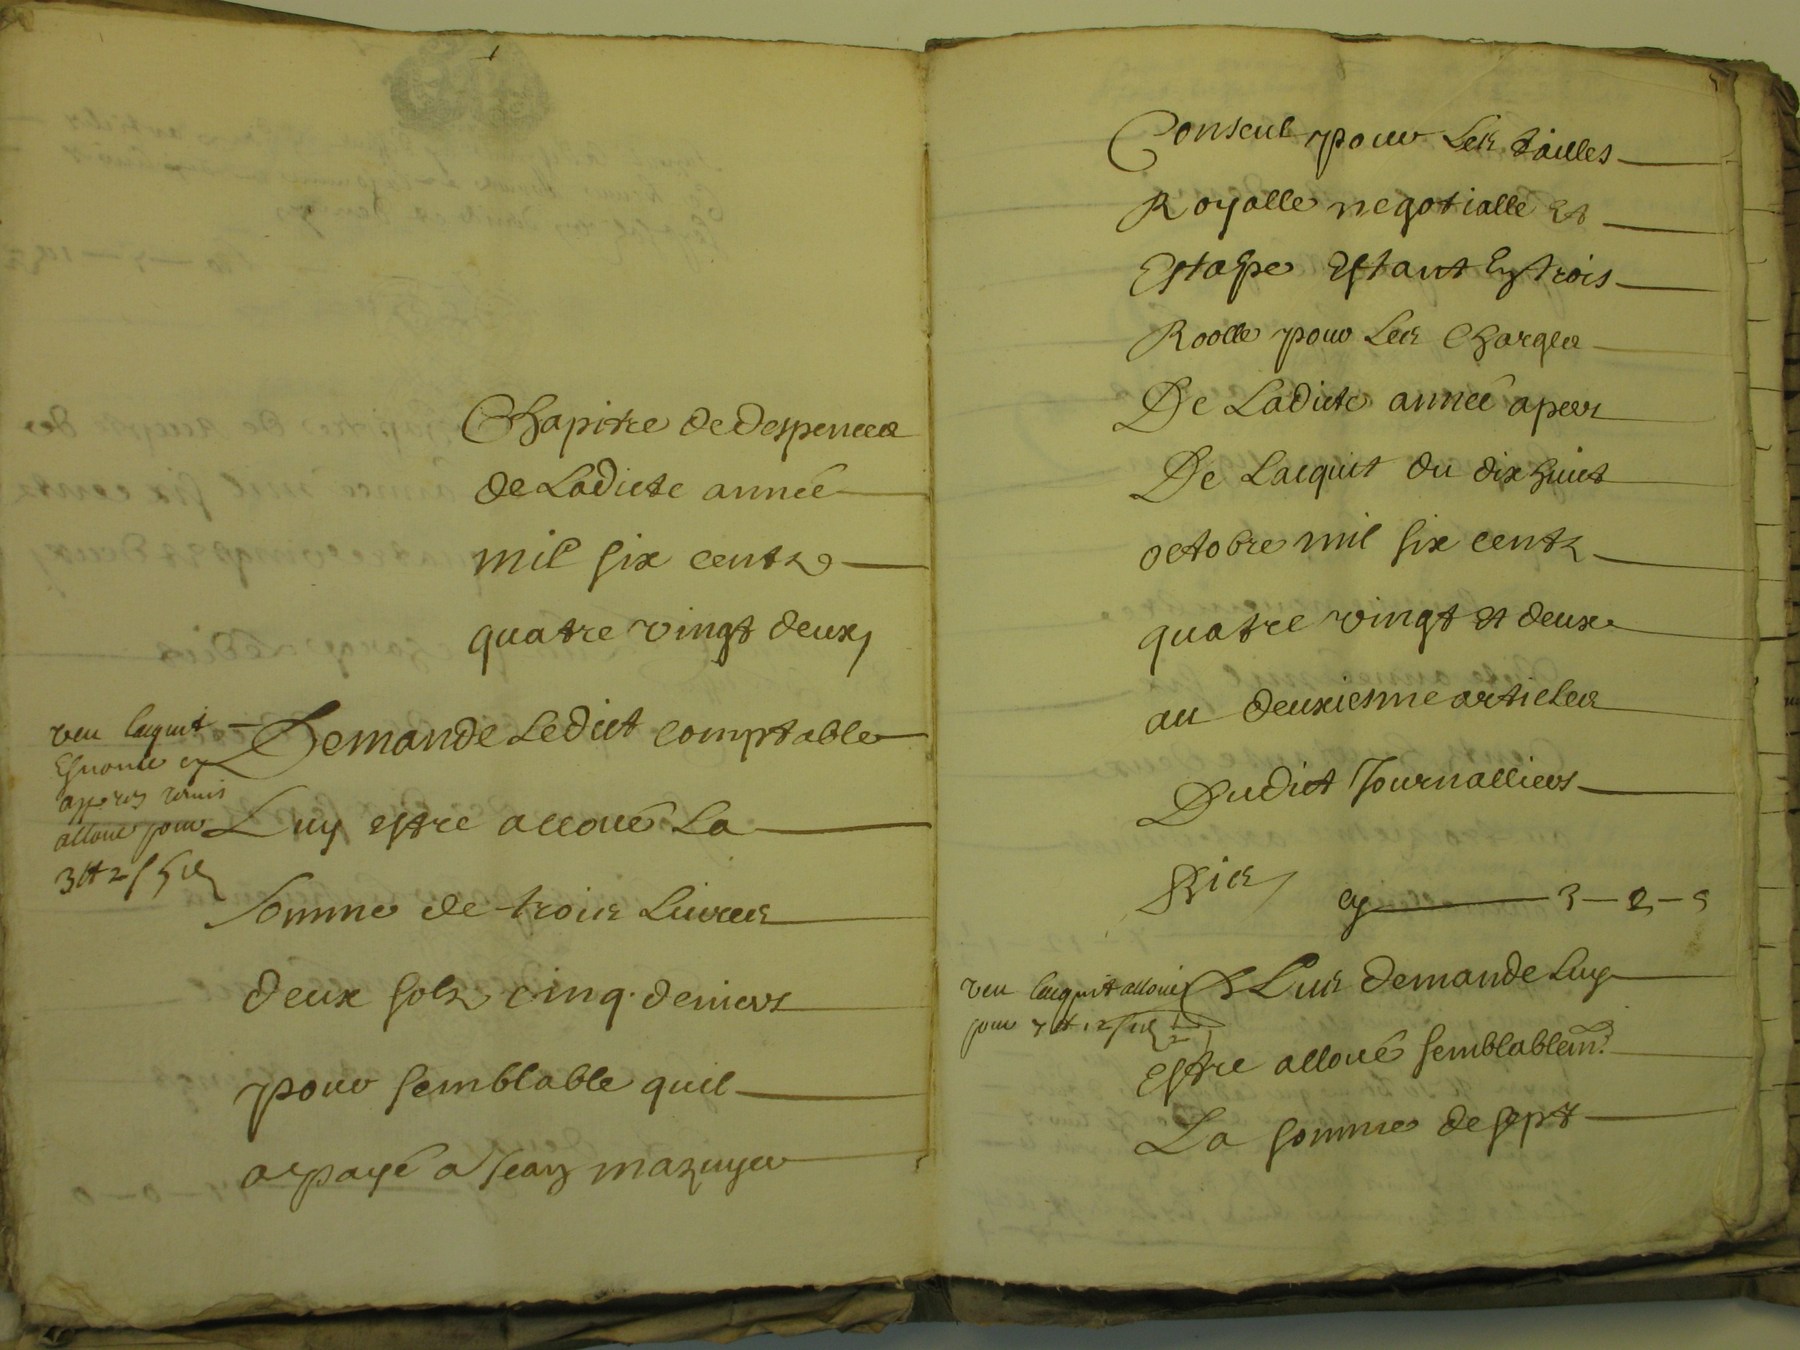 Chapitre de despences
de Ladicte année
mil six centz
quatre vingt deux,
veu lacquit
alloué pour
3# 2 s 5 d
Demande Ledict comptable
Luy estre alloué La
Somme de trois Livres
deux solz cinq deniers
pour semblable quil
a payé a Jean mazuyer
Conseul pour Les tailles
Royalle negotialle Et
Estape Estant En trois
Roolle pour Les Charges
De Ladicte année apert
De Lacquit du dix huict
octobre mil six centz
quatre vingt et deux
au deuxiesme articles
Dudict Journalliers
cy 3 - 2 - 5
veu lacquit alloué
pour 7 # 12 s
Plus demande Luy
Estre alloué semblablemt.
La somme de sept